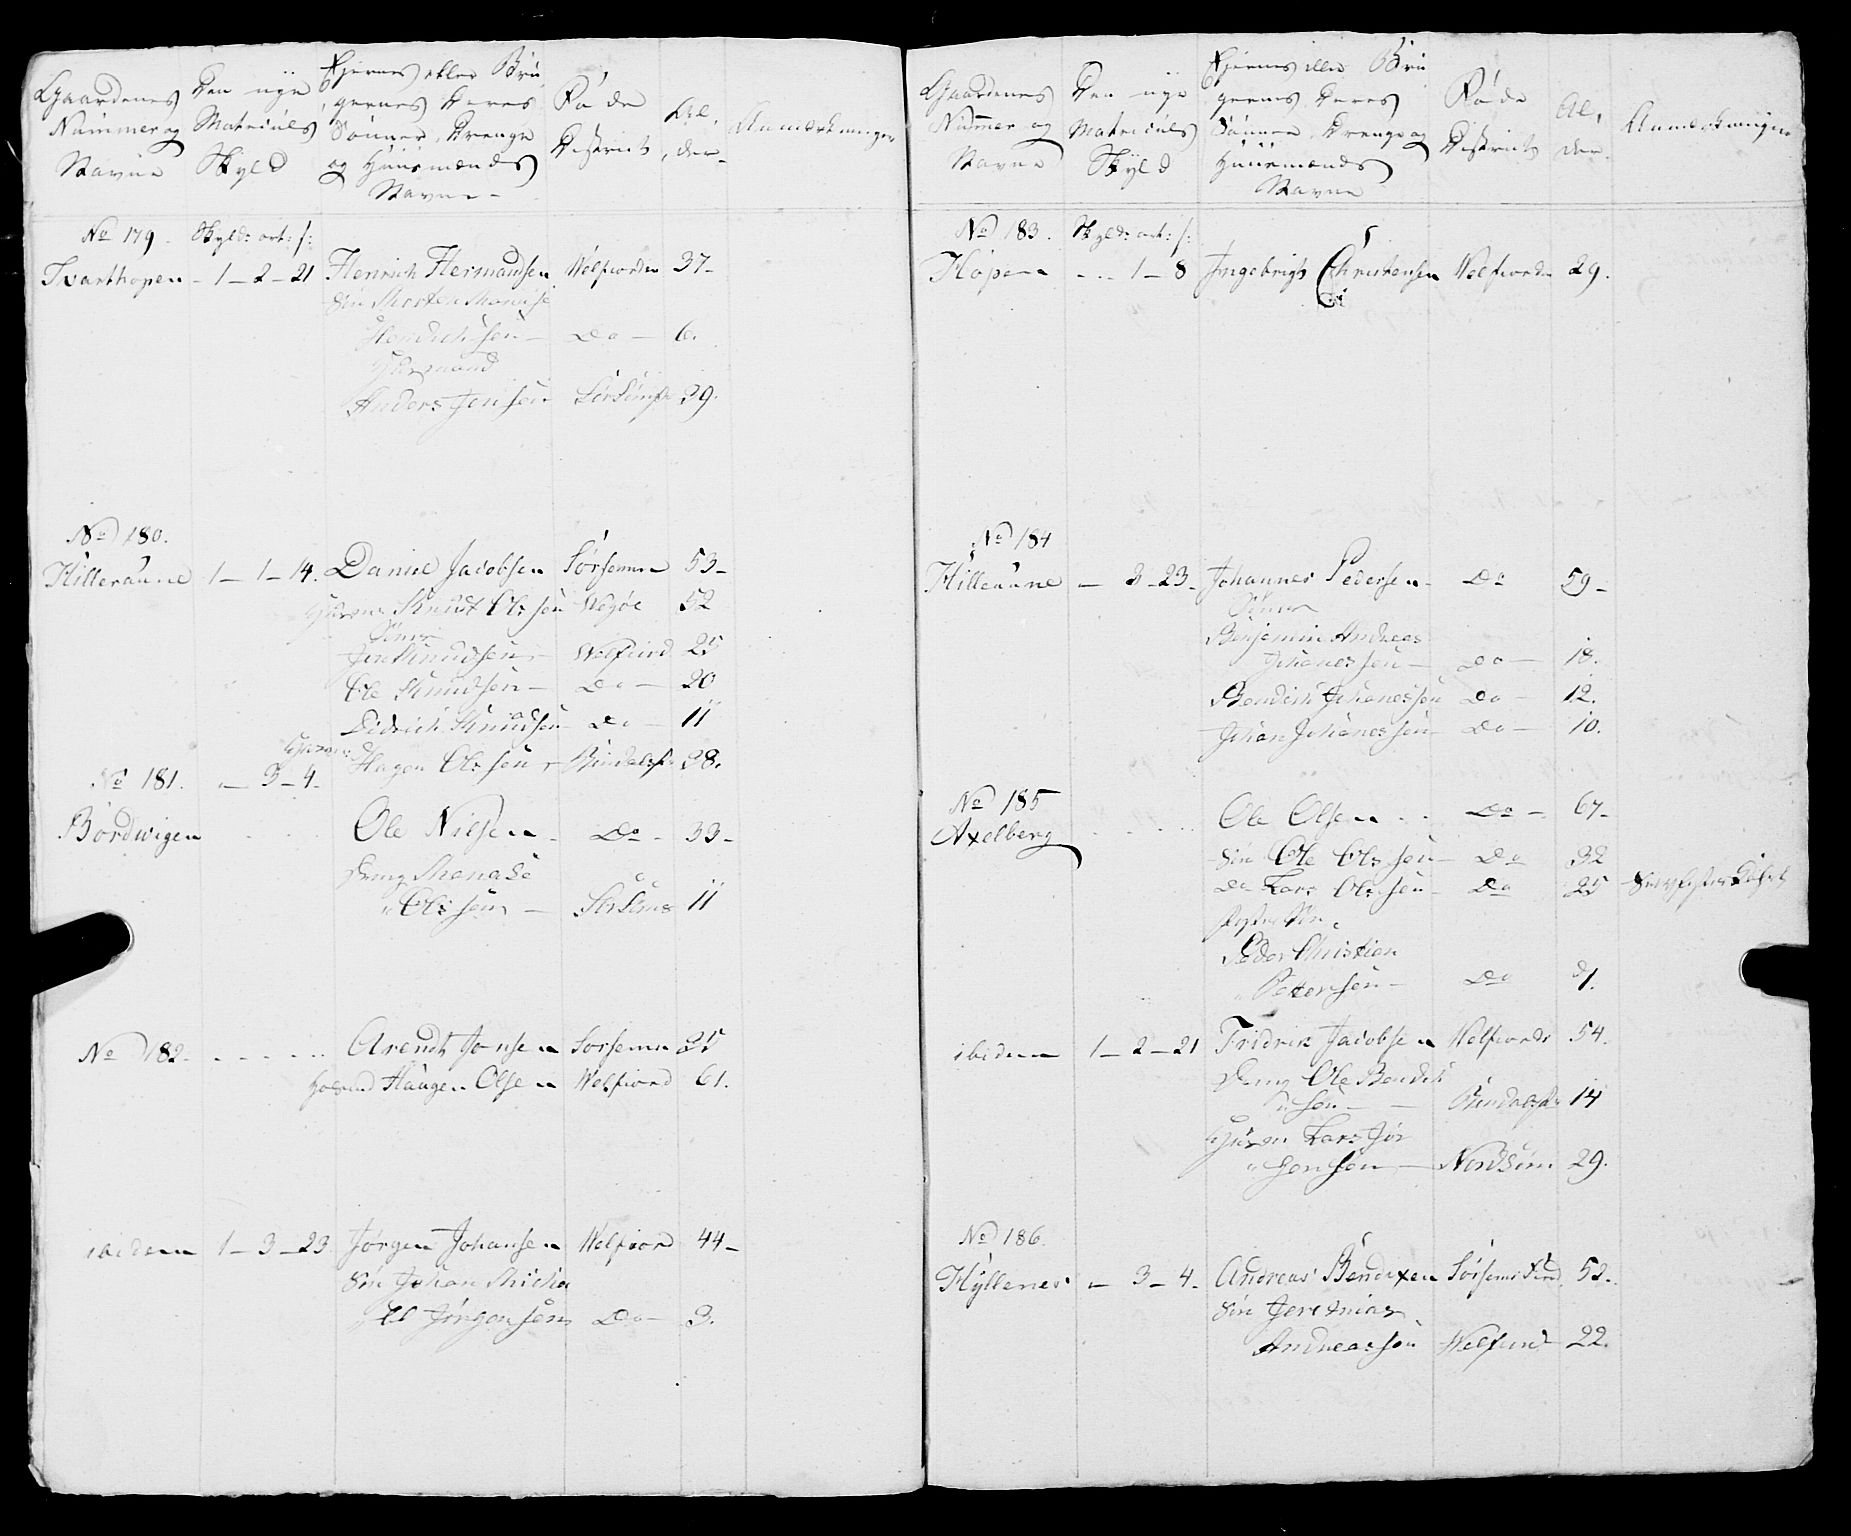 Gaardenes
Nummer og
Navne
Den nye
Matriculs
Skyld
Ejernes eller Bru
gernes Deres
Sønner, Drenge
og Huusmænds
Navne
Føde
District
Al,
der
Anmærkninger
No 179. Skyld: ort: s:
Tvarthopen - 1 - 2 - 21 Henrich Hermandsen Welfiorden 37 -
Søn
Hendrichsen - Do - 6.
Husmand
Anders Jensen 29.
No 180.
Hilleraune 1 - 1 - 14. Daniel Jacobsen Sørsemn 53 -
Knudt Olssen Wegøe 52
Søner
Jens Knudsen - Welfiord 25
Ole Knudsen - Do - 20
Didrich Knudsen - Do - 11
Hagen Olssen - Bindalsf 38.
No 181. - 3 - 4 -
Bordwigen Ole Nilsen - Do - 33 -
Dreng
Olssen - 11
No 182 - Arendt Jonsen Sørsemn 35
Husmd Haagen Olsen Welfiord 61.
ibidem 1 - 3 - 23. Jørgen Johansen Welfiord 44 -
Søn Johan Micha
el Jørgensen Do - 3.
Gaardenes
Nummer og
Navne
Den nye
Matriculs
Skyld
Ejernes eller Bru
gernes Deres
Sønner, Drenge og
Huusmænds
Navne
Føde
District
Al,
der
Anmærkninger
No 183. Skyld: ort: s:
Hopen - 1 - 8 Ingebrigt Christensen Welfiord 29.
No 184
Hilleraune - 3 - 23 - Johannes Pedersen - Do 59 -
Sønner
Benjamin Andreas
Johanessen - Do - 18.
Bendich Johanessen Do - 12.
Johan Johanessen - Do - 10.
No 185
Axelberg Ole Olsen Do - 67 -
Søn Ole Olssen - Do 32
Do Lars Olssen - Do 25
Pleje Søn
Peder Christian
Petersen - Do 9.
ibidem 1 - 2 - 21 Fridrik Jacobsen Welfiord 54.
Dreng Ole Bendik
sen - Bindalsf 14
Lars Jør
gensen - Nordsøm 29.
No 186.
Hyllenes - 3 - 4 - Andreas Bendixen 52.
Søn Jeremias
Andreassen Welfiord 22.